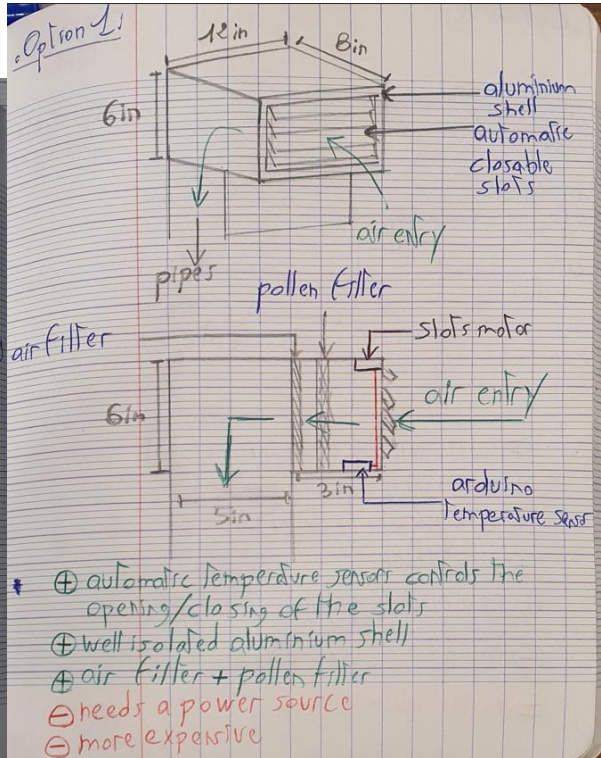 Option 1:
12in
8in
6in
aluminium
shell
automatic
closable
slots
air entry
pipes
pollen filter
air filter
slots motor
air entry
6in
3in
5in
arduino
temperature sensor
⊕ automatic temperature sensors controls the
opening/closing of the slots
⊕ well isolated aluminium shell
⊕ air filter + pollen filter
⊖ needs a power source
⊖ more expensive